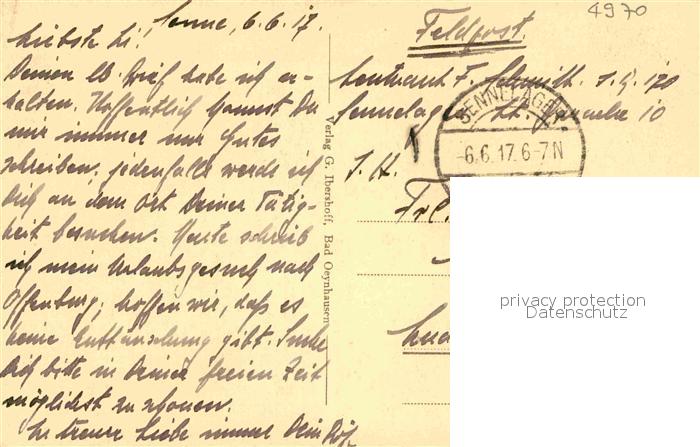 Senne, 6.6.17.
Liebste Li!
Deinen lb. Brief habe ich er-
halten. Hoffentlich kannst Du
mir immer nur Gutes
schreiben. jedenfalls werde ich
Dich an dem Ort Deiner Tätig-
keit besuchen. Heute schrieb
ich mein Urlaubsgesuch nach
Offenburg; hoffen wir, daß es
keine Enttäuschung gibt. Suche
Dich bitte in Deiner freien Zeit
möglichst zu schonen.
In treuer Liebe immer Dein
Verlag G. Ibershoff, Bad Oeynhausen
4970
Feldpost.
Leutnant F. Schmitt. I.R. 170
Sennelager Baracke 10
SENNELAGER
-6.6.17.6-7N
S.H.
Frl.
privacy protection
Datenschutz